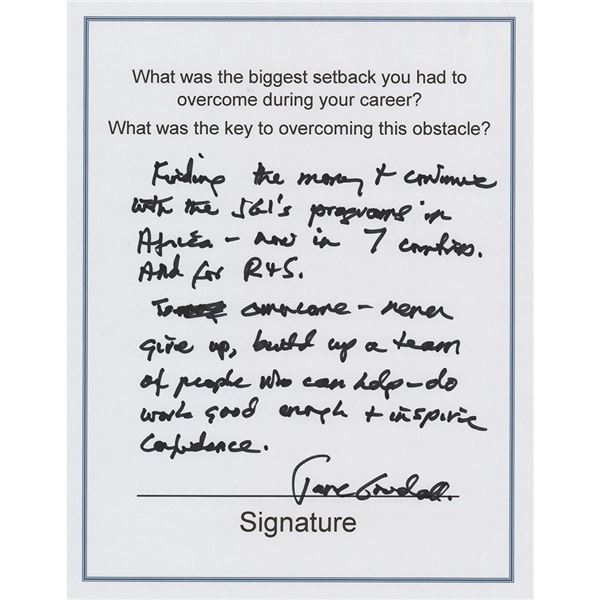 What was the biggest setback you had to
overcome during your career?
What was the key to overcoming this obstacle?
Finding the money + continue
with the JGI's programs in
Africa – now in 7 countries.
And for R+S.
To overcome – never
give up, build up a team
of people who can help – do
work good enough + inspire
confidence.
Jane Goodall.
Signature